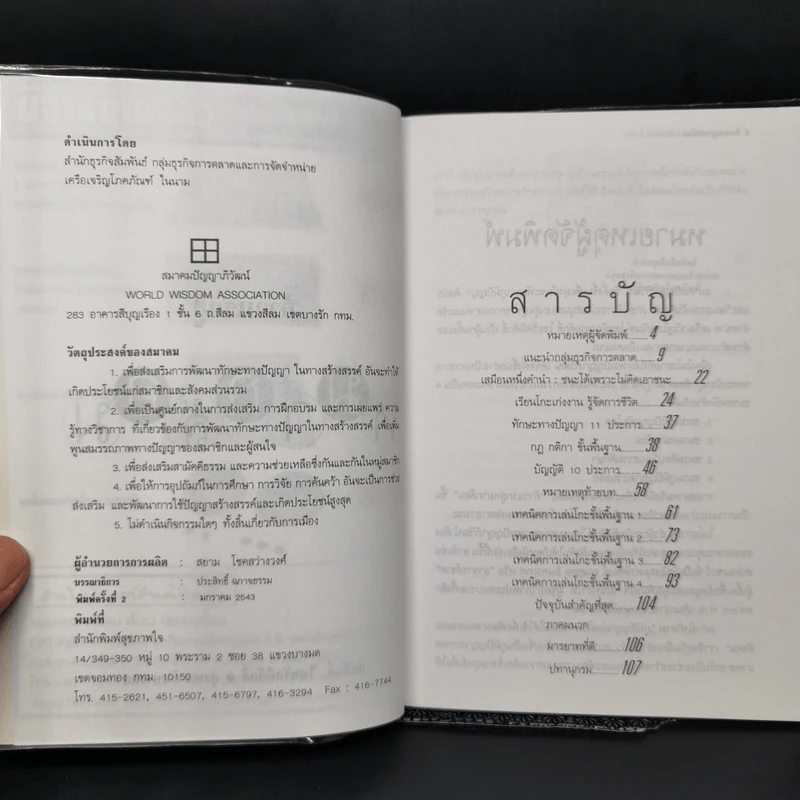 ดำเนินการโดย
สำนักธุรกิจสัมพันธ์ กลุ่มธุรกิจการตลาดและการจัดจำหน่าย
เครือเจริญโภคภัณฑ์ ในนาม
สมาคมปัญญาภิวัฒน์
WORLD WISDOM ASSOCIATION
283 อาคารสีบุญเรือง 1 ชั้น 6 ถ.สีลม แขวงสีลม เขตบางรัก กทม.
วัตถุประสงค์ของสมาคม
1. เพื่อส่งเสริมการพัฒนาทักษะทางปัญญา ในทางสร้างสรรค์ อันจะทำให้
เกิดประโยชน์แก่สมาชิกและสังคมส่วนรวม
2. เพื่อเป็นศูนย์กลางในการส่งเสริม การฝึกอบรม และการเผยแพร่ ความ
รู้ทางวิชาการ ที่เกี่ยวข้องกับการพัฒนาทักษะทางปัญญาในทางสร้างสรรค์ เพื่อเพิ่ม
พูนสมรรถภาพทางปัญญาของสมาชิกและผู้สนใจ
3. เพื่อส่งเสริมสามัคคีธรรม และความช่วยเหลือซึ่งกันและกันในหมู่สมาชิก
4. เพื่อให้การอุปถัมภ์ในการศึกษา การวิจัย การค้นคว้า อันจะเป็นการช่วย
ส่งเสริม และพัฒนาการใช้ปัญญาสร้างสรรค์และเกิดประโยชน์สูงสุด
5. ไม่ดำเนินกิจกรรมใดๆ ทั้งสิ้นเกี่ยวกับการเมือง
ผู้อำนวยการการผลิต : สยาม โชคสว่างวงศ์
บรรณาธิการ : ประสิทธิ์ ฉกาจธรรม
พิมพ์ครั้งที่ 2 : มกราคม 2543
พิมพ์ที่
สำนักพิมพ์สุขภาพใจ
14/349-350 หมู่ 10 พระราม 2 ซอย 38 แขวงบางมด
เขตจอมทอง กทม. 10150
โทร. 415-2621, 451-6507, 415-6797, 416-3294 Fax : 416-7744
สารบัญ
หมายเหตุผู้จัดพิมพ์ 4
แนะนำกลุ่มธุรกิจการตลาด 9
เสมือนหนึ่งคำนำ : ชนะได้เพราะไม่คิดเอาชนะ 22
เรียนโกะเก่งงาน รู้จัดการชีวิต 24
ทักษะทางปัญญา 11 ประการ 37
กฎ กติกา ขั้นพื้นฐาน 38
บัญญัติ 10 ประการ 46
หมายเหตุท้ายบท 58
เทคนิคการเล่นโกะขั้นพื้นฐาน 1 61
เทคนิคการเล่นโกะขั้นพื้นฐาน 2 73
เทคนิคการเล่นโกะขั้นพื้นฐาน 3 82
เทคนิคการเล่นโกะขั้นพื้นฐาน 4 93
ปัจจุบันสำคัญที่สุด 104
ภาคผนวก
มารยาทที่ดี 106
ปทานุกรม 107